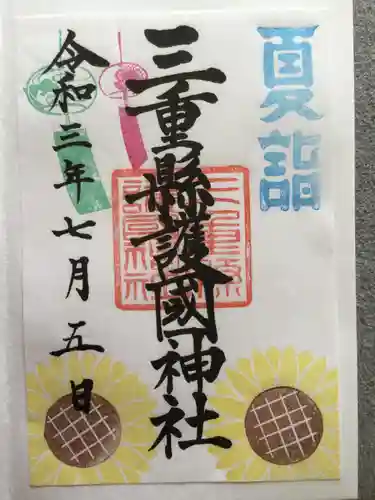 夏詣
三重縣護國神社
令和三年七月五日